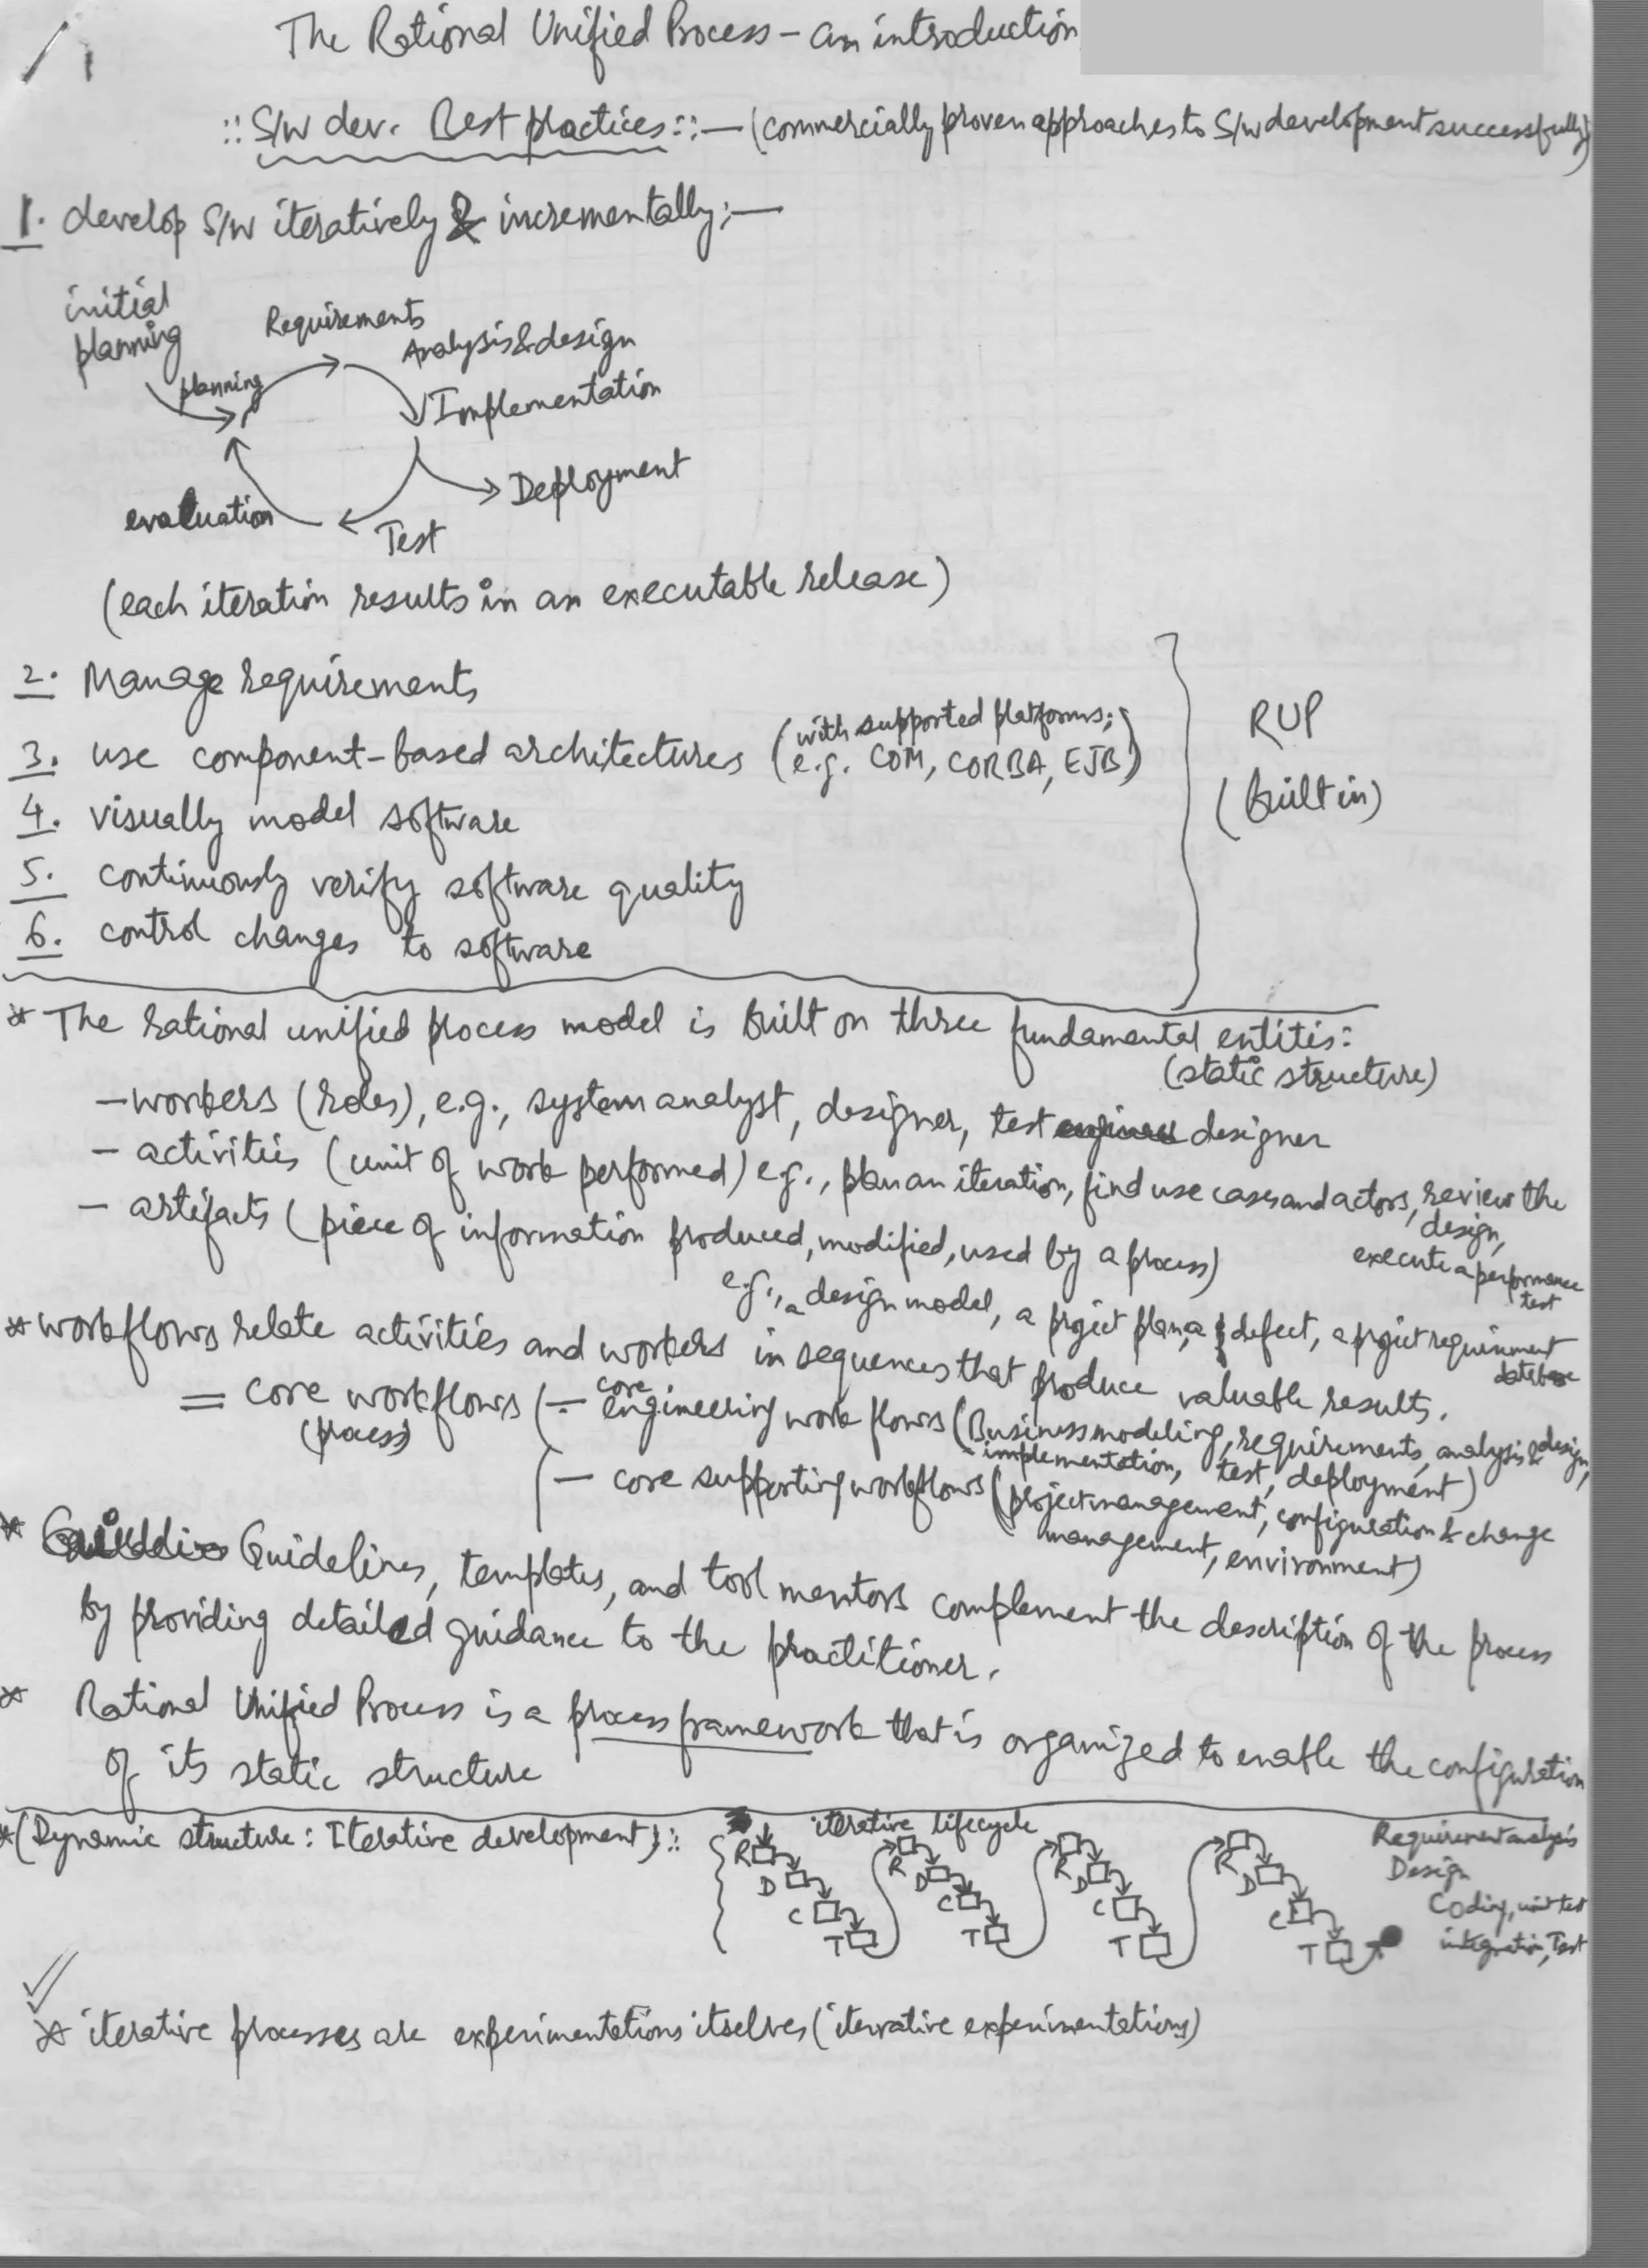 The Rational Unified Process - an introduction
:: S/W dev. Best practices :: — (commercially proven approaches to S/W development successfully)
1. develop S/W iteratively & incrementally:—
initial
planning
planning
Requirements
Analysis & design
Implementation
Deployment
Test
evaluation
(each iteration results in an executable release)
2. Manage requirements
3. use component-based architectures (with supported platforms;
e.g. COM, CORBA, EJB)
4. visually model software
5. continuously verify software quality
6. control changes to software
RUP
(built in)
* The rational unified process model is built on three fundamental entitis:
(static structure)
- workers (roles), e.g., system analyst, designer, test designer
- activities (unit of work performed) e.g., plan an iteration, find use cases and actors, review the
design,
execute a performance
test
- artifacts (piece of information produced, modified, used by a process)
e.g., a design model, a project plan, a defect, a project requirement
database
* workflows relate activities and workers in sequences that produce valuable results.
= core workflows
(process)
- core engineering workflows (Business modeling, requirements, analysis & design,
implementation, test, deployment)
- core supporting workflows (project management, configuration & change
management, environment)
* Guidelines, templates, and tool mentors complement the description of the process
by providing detailed guidance to the practitioner.
* Rational Unified Process is a process framework that is organized to enable the configuration
of its static structure
* (Dynamic structure: Iterative development)::
iterative lifecycle
R D C T R D C T R D C T R D C T
Requirement analysis
Design
Coding, unit test
integration, Test
* iterative processes are experimentations itselves (iterative experimentations)